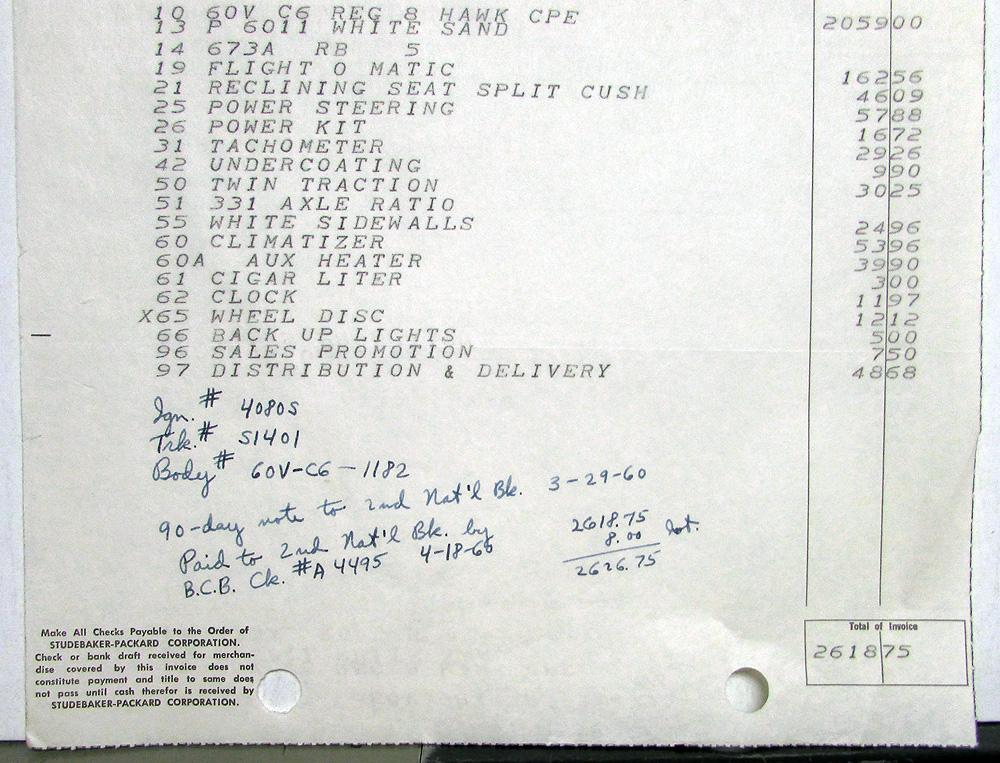 10 60V C6 REG 8 HAWK CPE 205900
13 P 6011 WHITE SAND
14 673A RB 5
19 FLIGHT O MATIC 16256
21 RECLINING SEAT SPLIT CUSH 4609
25 POWER STEERING 5788
26 POWER KIT 1672
31 TACHOMETER 2926
42 UNDERCOATING 990
50 TWIN TRACTION 3025
51 331 AXLE RATIO
55 WHITE SIDEWALLS 2496
60 CLIMATIZER 5396
60A AUX HEATER 3990
61 CIGAR LITER 300
62 CLOCK 1197
X65 WHEEL DISC 1212
66 BACK UP LIGHTS 500
96 SALES PROMOTION 750
97 DISTRIBUTION & DELIVERY 4868
Ign. # 4080S
Trk. # S1401
Body # 60V-C6-1182
90-day note to 2nd Nat'l Bk. 3-29-60
Paid to 2nd Nat'l Bk. by 2618.75
B.C.B. Ck. #A 4495 4-18-60 8.00 Int.
2626.75
Make All Checks Payable to the Order of
STUDEBAKER-PACKARD CORPORATION.
Check or bank draft received for merchan-
dise covered by this invoice does not
constitute payment and title to same does
not pass until cash therefor is received by
STUDEBAKER-PACKARD CORPORATION.
Total of Invoice
261875